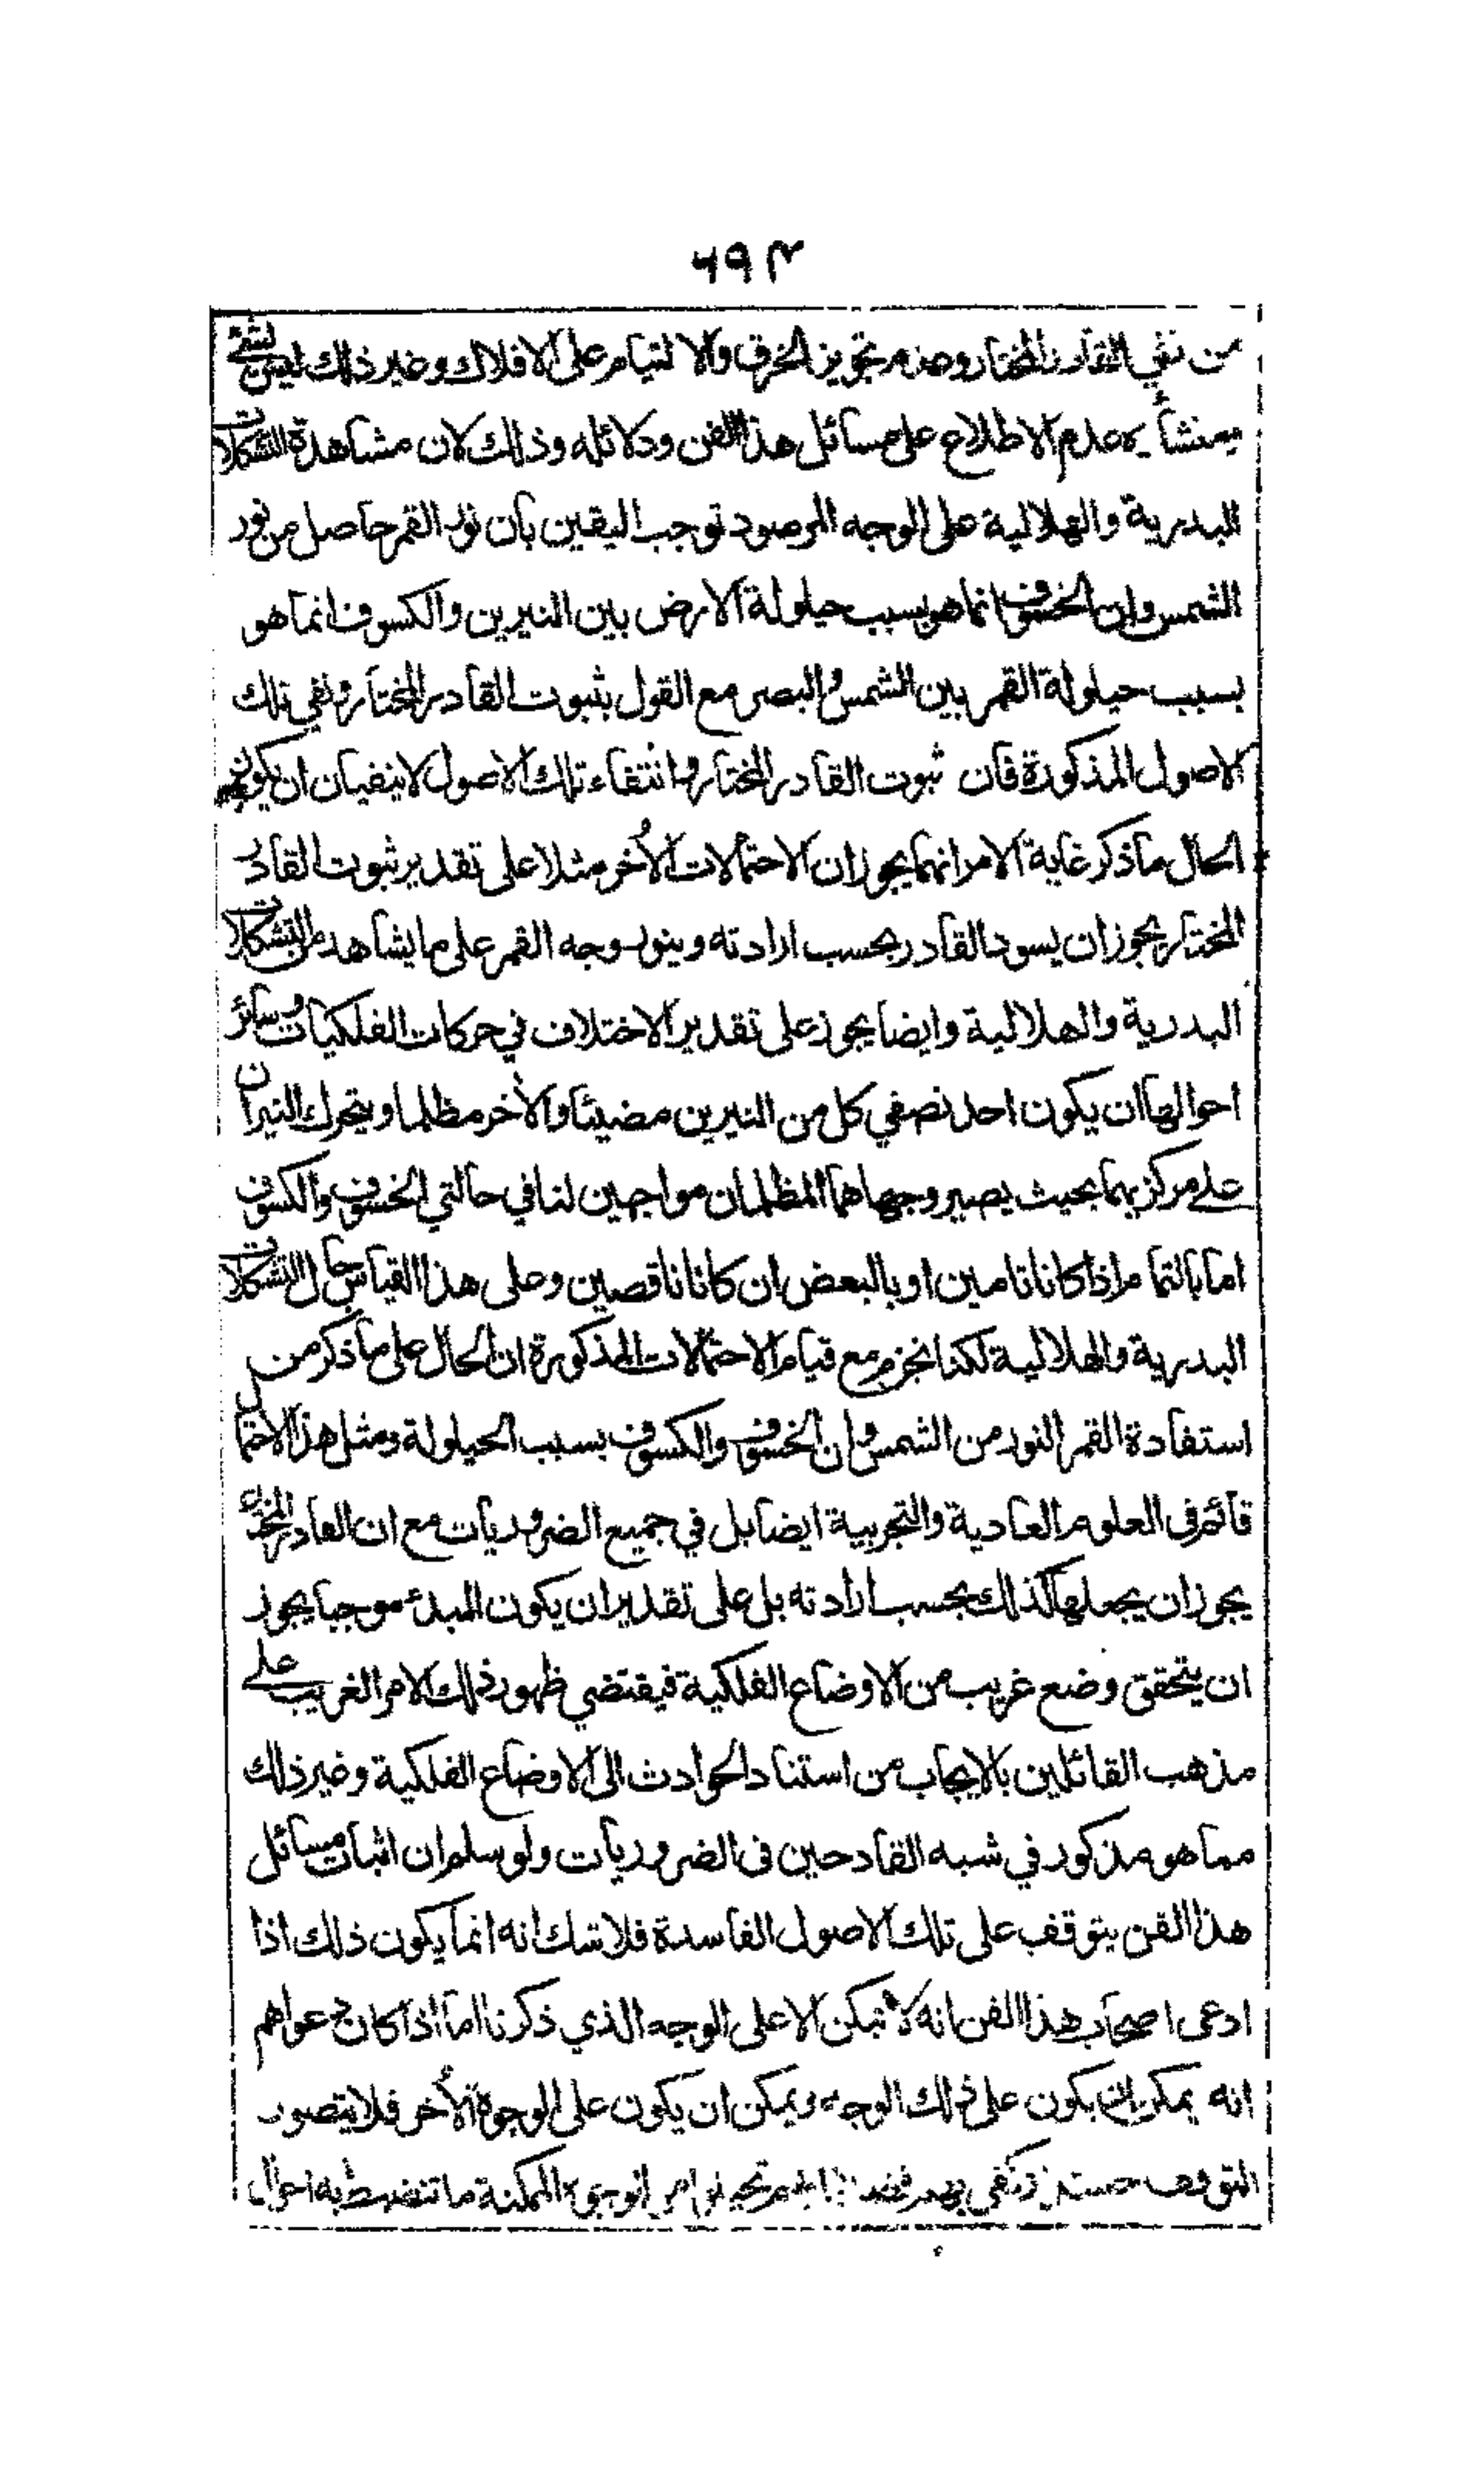 ٦٩٣
من نفي القادر المختار وعدم تجويز الخرق والالتيام على الافلاك وغير ذلك ليس بشئ
منشأه عدم الاطلاع على مسائل هذا الفن ودلائله وذلك لان مشاهدة التشكلات
البدرية والهلالية على الوجه المرصود توجب اليقين بان نور القمر حاصل من نور
الشمس وان الخسوف انما هو بسبب حيلولة الارض بين النيرين والكسوف انما هو
بسبب حيلولة القمر بين الشمس والبصر مع القول بثبوت القادر المختار ونفي تلك
الاصول المذكورة فان ثبوت القادر المختار وانتفاء تلك الاصول لا ينفيان ان يكون
الحال ما ذكر غاية الامر انهما يجوزان الاحتمالات الأخر مثلا على تقدير ثبوت القادر
المختار يجوز ان يسود القادر بحسب ارادته وينور وجه القمر على ما يشاهد من التشكلات
البدرية والهلالية وايضا يجوز على تقدير الاختلاف في حركات الفلكيات وسائر
احوالها ان يكون احد نصفي كل من النيرين مضيئا والأخر مظلما ويتحرك النيران
على مركزيهما بحيث يصير وجهاهما المظلمان مواجهين لنا في حالتي الخسوف والكسوف
اما بالتمام اذا كانا تامين او بالبعض ان كانا ناقصين وعلى هذا القياس حال التشكلات
البدرية والهلالية لكنا نجزم مع قيام الاحتمالات المذكورة ان الحال على ما ذكر من
استفادة القمر النور من الشمس وان الخسوف والكسوف بسبب الحيلولة ومثل هذا الاحتمال
قائم فى العلوم العادية والتجربية ايضا بل في جميع الضروريات مع ان القادر المختار
يجوز ان يجعلها كذلك بحسب ارادته بل على تقدير ان يكون المبدء موجبا يجوز
ان يتحقق وضع غريب من الاوضاع الفلكية فيقتضي ظهور ذلك الامر الغريب على
مذهب القائلين بالايجاب من استناد الحوادث الى الاوضاع الفلكية وغير ذلك
مما هو مذكور في شبه القادحين فى الضروريات ولو سلم ان اثبات مسائل
هذا الفن يتوقف على تلك الاصول الفاسدة فلا شك انه انما يكون ذلك اذا
ادعى اصحاب هذا الفن انه لا يمكن الا على الوجه الذي ذكرنا اما اذا كان دعواهم
انه يمكن ان يكون على ذلك الوجه ويمكن ان يكون على الوجوه الأخر فلا يتصور
التوقف حينئذ وكفى بهم فضلا الممكنة ما تنضبط به احوال